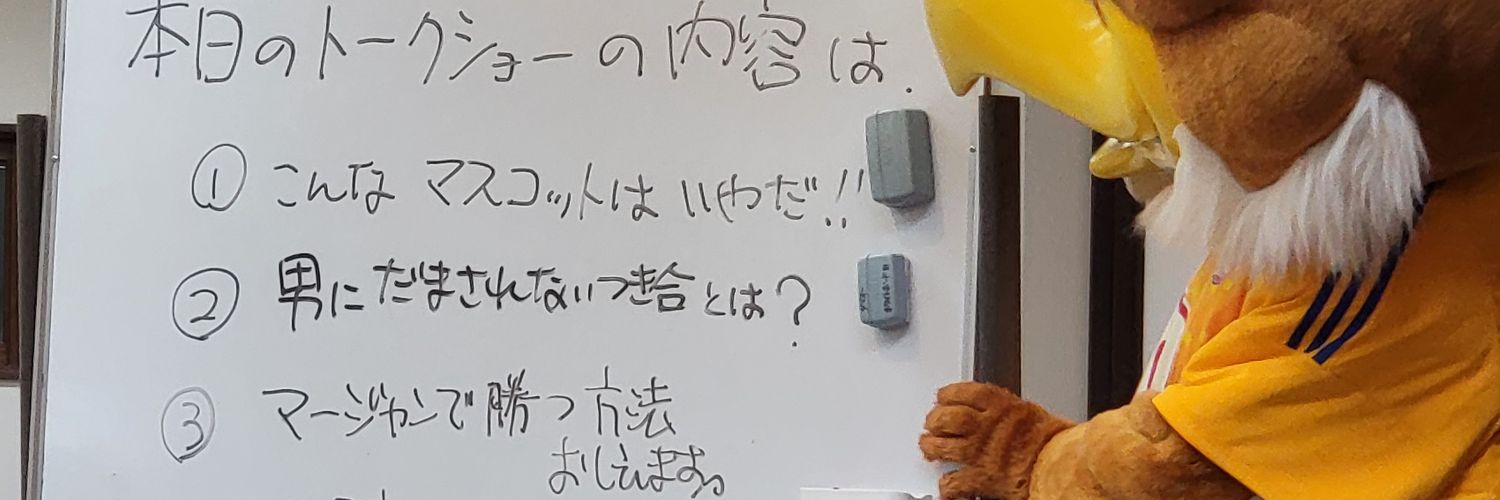 本日のトークショーの内容は.
① こんな マスコットは いやだ!!
② 男にだまされないつき合とは?
③ マージャンで勝つ方法
おしえます。